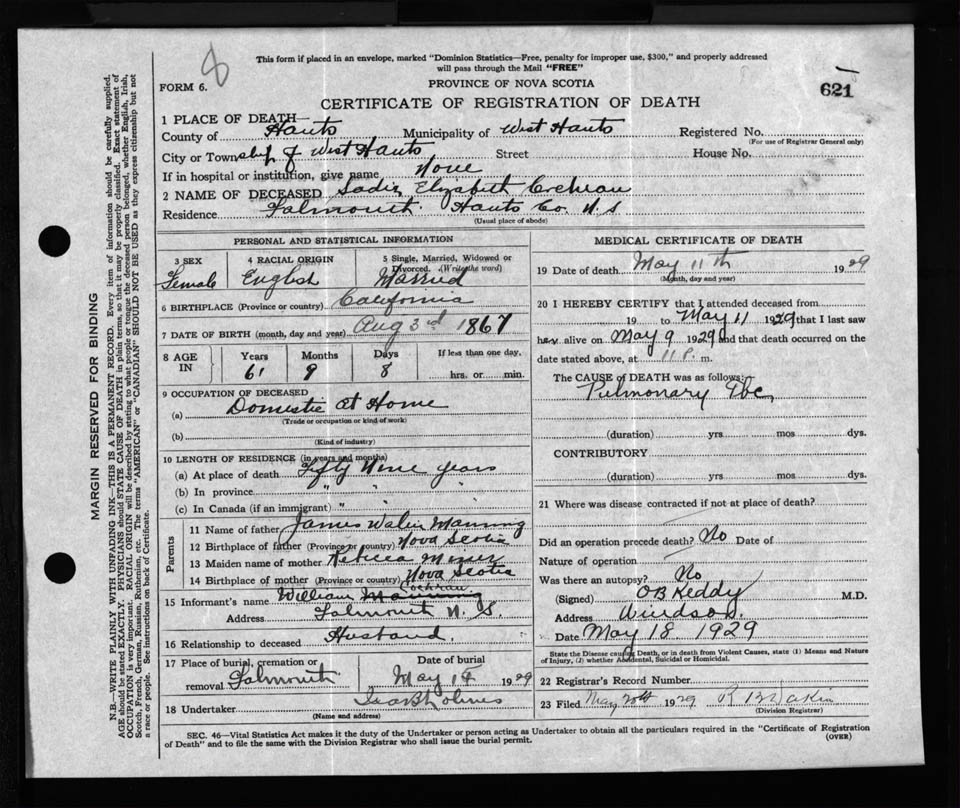 8
This form if placed in an envelope, marked "Dominion Statistics—Free, penalty for improper use, $300," and properly addressed
will pass through the Mail "FREE"
FORM 6.
PROVINCE OF NOVA SCOTIA
621
CERTIFICATE OF REGISTRATION OF DEATH
1 PLACE OF DEATH—
County of Hants Municipality of West Hants Registered No.
(For use of Registrar General only)
City or Township of West Hants Street House No.
If in hospital or institution, give name None
2 NAME OF DECEASED Sadie Elizabeth Cochran
Residence Falmouth Hants Co. N.S
(Usual place of abode)
PERSONAL AND STATISTICAL INFORMATION
3 SEX 4 RACIAL ORIGIN 5 Single, Married, Widowed or
Divorced. (Write the word)
Female English Married
6 BIRTHPLACE (Province or country) California
7 DATE OF BIRTH (month, day and year) Aug 3rd 1867
8 AGE IN Years Months Days If less than one day.
61 9 8 hrs. or min.
9 OCCUPATION OF DECEASED
(a) Domestic at Home
(Trade or occupation or kind of work)
(b)
(Kind of industry)
10 LENGTH OF RESIDENCE (in years and months)
(a) At place of death Fifty Nine years
(b) In province " " "
(c) In Canada (if an immigrant) " " "
Parents
11 Name of father James Manning
12 Birthplace of father (Province or country) Nova Scotia
13 Maiden name of mother Rebecca
14 Birthplace of mother (Province or country) Nova Scotia
Cochran
15 Informant's name William Manning
Address Falmouth N. S.
16 Relationship to deceased Husband.
17 Place of burial, cremation or Date of burial
removal Falmouth May 14 1929
18 Undertaker
(Name and address)
MEDICAL CERTIFICATE OF DEATH
19 Date of death May 11th 1929
(Month, day and year)
20 I HEREBY CERTIFY that I attended deceased from
19 to May 11 1929 that I last saw
her alive on May 9 1929 and that death occurred on the
date stated above, at 11 P. m.
The CAUSE of DEATH was as follows:—
Pulmonary Tbc,
(duration) yrs mos dys.
CONTRIBUTORY
(duration) yrs mos dys.
21 Where was disease contracted if not at place of death?
Did an operation precede death? No Date of
Nature of operation
Was there an autopsy? No
(Signed) O B Keddy M.D.
Address Windsor.
Date May 18 1929
State the Disease causing Death, or in death from Violent Causes, state (1) Means and Nature
of Injury, (2) whether Accidental, Suicidal or Homicidal.
22 Registrar's Record Number
23 Filed May 20th 1929
(Division Registrar)
SEC. 46—Vital Statistics Act makes it the duty of the Undertaker or person acting as Undertaker to obtain all the particulars required in the "Certificate of Registration
of Death" and to file the same with the Division Registrar who shall issue the burial permit.
(OVER)
MARGIN RESERVED FOR BINDING
N.B.—WRITE PLAINLY WITH UNFADING INK—THIS IS A PERMANENT RECORD. Every item of information should be carefully supplied.
AGE should be stated EXACTLY. PHYSICIANS should STATE CAUSE OF DEATH in plain terms, so that it may be properly classified. Exact statement of
OCCUPATION is very important. RACIAL ORIGIN will be described by stating to what people or tongue the deceased person belonged, whether English, Irish,
Scotch, French, German, Russian, Ruthenian, etc. The terms "AMERICAN" or "CANADIAN" SHOULD NOT BE USED as they express citizenship but not
a race or people. See instructions on back of Certificate.